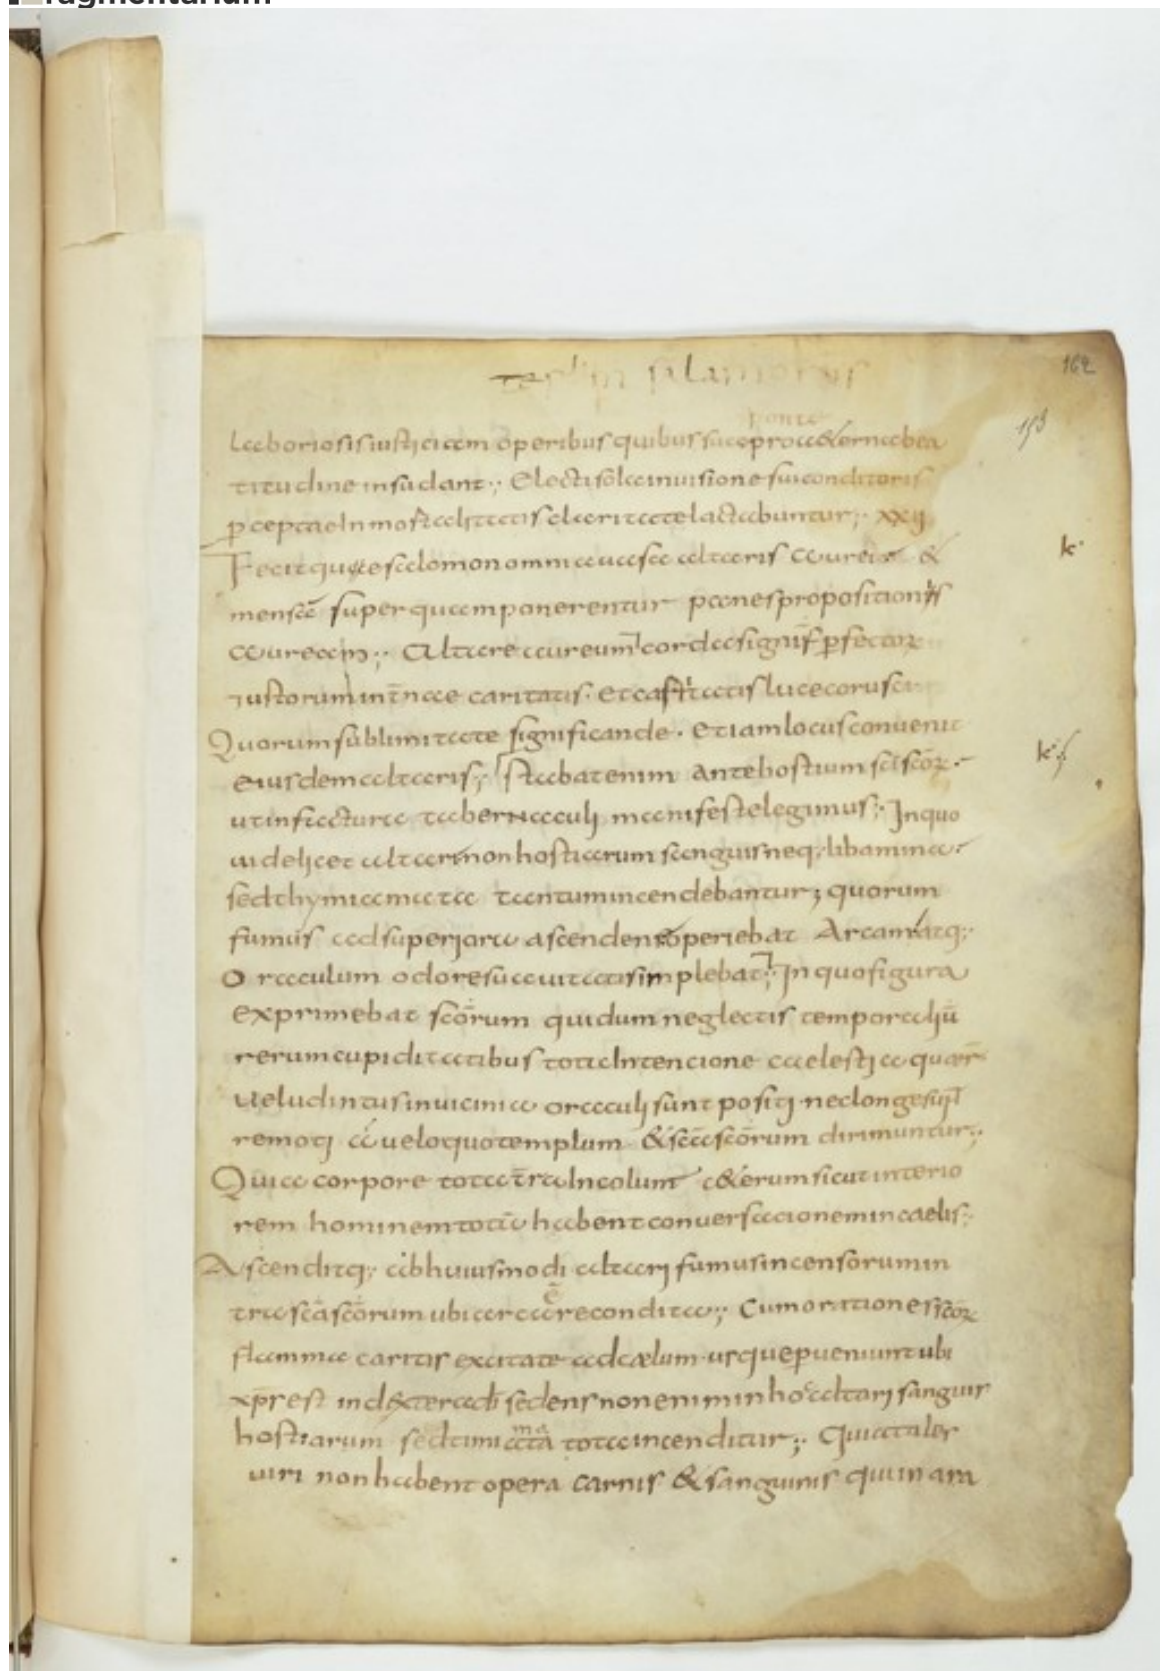 ragmentarium
162
153
laboriosis iusticiam operibus quibus sua pro aeterna bea
titudine insudant;, Electi sola in uisione sui conditoris
p̱ceptae In mortalitatis claritate lactabuntur;, xxij
Fecitque salomon omnia uasa altaris aurei &
k·
mensā super quam ponerentur panes propositionis
auream;, Altare aureum corda signif p̱fector
iustorum in caritatis· et castitatis luce corusc
Quorum sublimitate significande· etiam locus conuenit
k·
eiusdem altaris;, stabat enim ante hostium
ut in factura tabernaculi manifeste legimus;, In quo
uidelicet altari non hostiarum sanguis neq; libamina·
sed thymiamata tantum incendebantur; quorum
fumus ad superiora ascendens operiebat Arcam atq;
Oraculum odore suauitatis implebat;, In quo figura
exprimebat scōrum qui dum neglectis temporaliū
rerum cupiditatibus tota Intencione caelestia quaer
uelud intus in uicinia oraculi sunt positi· nec longe sunt
remoti a uelo quo templum & scā scōrum dirimuntur;,
Quia corpore tota trā Incolunt ceterum sicut interio
rem hominem totū habent conuersacionem in caelis;,
Ascenditq; ab huiusmodi altari fumus incensorum in
tra scā scōrum ubi arca ē recondita;, Cum oratione scōr
flamma caritis excitate ad caelum· usque p̱ueniunt ubi
xp̄s est in dextera di sedens non enim in hoc altari sanguis
hostiarum sed timiamatā tota incenditur;, Quia tales
uiri non habent opera carnis & sanguinis qui in ara